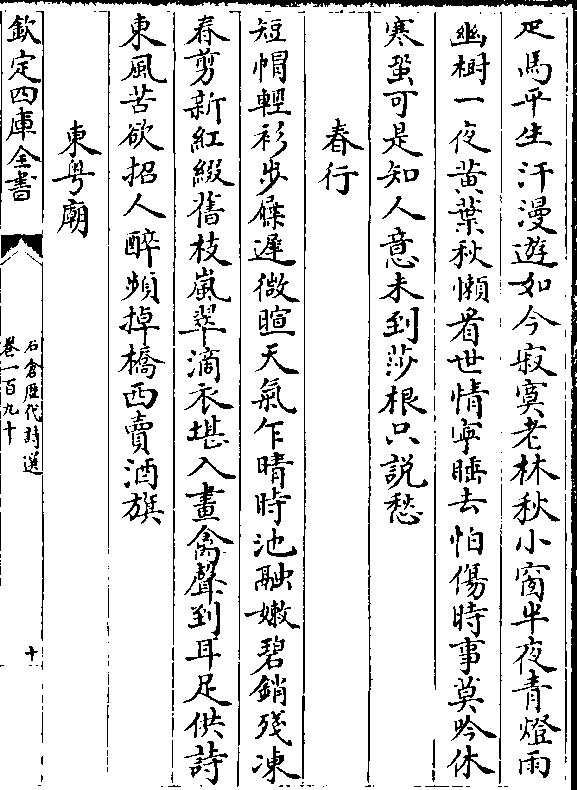 疋馬平生汗漫遊如今寂寞老林秋小窗半夜青燈雨
幽樹一夜黃葉秋懶看世情寧睡去怕傷時事莫吟休
寒蛩可是知人意未到莎根只説愁
春行
短帽輕衫步屧遲微暄天氣乍晴時池融嫩碧銷殘凍
春剪新紅綴舊枝嵐翠滴衣堪入畫禽聲到耳足供詩
東風苦欲招人醉頻掉橋西賣酒旗
東粤廟
欽定四庫全書
石倉歴代詩選
卷一百九十
十